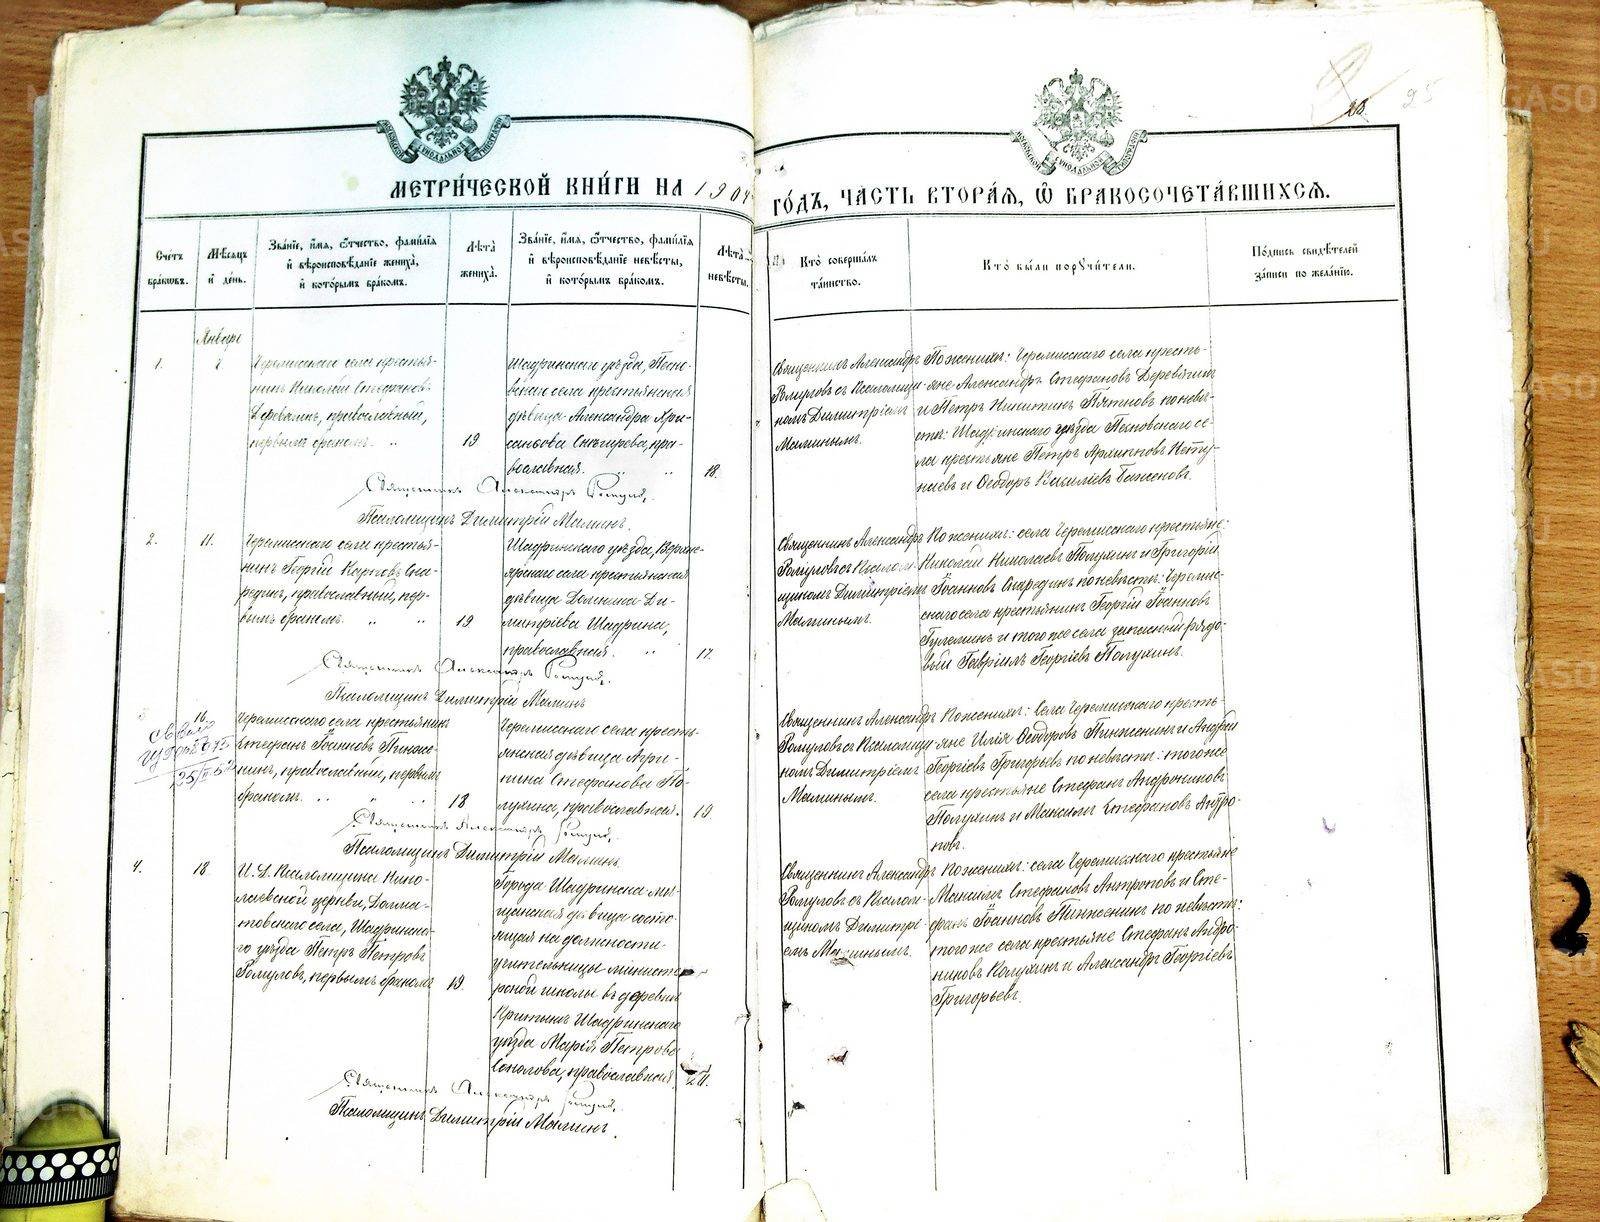 25
МЕТРИ́ЧЕСКОЙ КНИ́ГИ НА 1904 ГО́ДЪ, ЧА́СТЬ ВТОРА́Я, Ѽ БРАКОСОЧЕТА́ВШИХСЯ.
Сче́тъ бра́ковъ.
Мѣ́сяцъ и́ де́нь.
Зва́нїе, и́мя, ѻ҆́тчество, фами́лїя и́ вѣроисповѣ́данїе жениха̀, и́ кото́рымъ бра́комъ.
Лѣ́та̀ жениха̀.
Зва́нїе, и́мя, ѻ҆́тчество, фами́лїя и́ вѣроисповѣ́данїе невѣ́сты, и́ кото́рымъ бра́комъ.
Лѣ́та̀ невѣ́сты.
Кто̀ соверша́лъ та́инство.
Кто̀ бы́ли порꙋчи́тели.
По́дпись свидѣ́телей за́писи по жела́нїю.
Январь
1.
Черемисскаго села кресть-
янинъ Николай Стефановъ
православный,
первымъ бракомъ. „
19
Шадринскаго уѣзда,
села крестьянская
дѣвица Александра Хри-
санѳова Снигирева, пра-
вославная. „ „
18.
Священникъ Александръ
Ромуловъ съ Псаломщи-
комъ Димитріемъ
Маминымъ.
По женихѣ: Черемисскаго села кресть-
яне Александръ Стефановъ Деревягинъ
и Петръ Никитинъ Пятковъ по невѣ-
стѣ: Шадринскаго уѣзда се-
ла крестьяне Петръ
и Ѳеодоръ Василіевъ Баженовъ.
Священникъ Александръ Ромуловъ
Псаломщикъ Димитрій Маминъ.
2.
11.
Черемисскаго села кресть-
янинъ Георгій Карповъ Ска-
рединъ, православный, пер-
вымъ бракомъ. „ „
19.
Шадринскаго уѣзда, Верхне-
ярскаго села крестьянская
дѣвица Домника Ди-
митріева Шадрина,
православная. „
17.
Священникъ Александръ
Ромуловъ съ Псалом-
щикомъ Димитріемъ
Маминымъ.
По женихѣ: села Черемисскаго крестьяне:
Николай Николаевъ Полухинъ и Григорій
Іоанновъ Скарединъ по невѣстѣ: Черемис-
скаго села крестьянинъ Георгій Іоанновъ
и того же села запасный рядо-
вый Гавріилъ Георгіевъ Полухинъ.
Священникъ Александръ Ромуловъ.
Псаломщикъ Димитрій Маминъ
25/II
16.
Черемисскаго села крестьянинъ
Стефанъ Іоанновъ Пинже-
нинъ, православный, первымъ
бракомъ. „ „ „
18
Черемисскаго села кресть-
янская дѣвица Агри-
пина Стефанова По-
лухина, православная.
19.
Священникъ Александръ
Ромуловъ съ Псаломщи-
комъ Димитріемъ
Маминымъ.
По женихѣ: Села Черемисскаго кресть-
яне Илія Ѳеодоровъ Пинженинъ и Андрей
Георгіевъ Григорьевъ по невѣстѣ: того же
села крестьяне Стефанъ Андрониковъ
Полухинъ и Максимъ Стефановъ Антро-
повъ.
Священникъ Александръ Ромуловъ.
Псаломщикъ Димитрій Маминъ.
4.
18.
И. д. Псаломщика Нико-
лаевской церкви, Долма-
товскаго села, Шадринска-
го уѣзда Петръ Петровъ
Ромуловъ, первымъ бракомъ
19.
Города Шадринска мѣ-
щанская дѣвица состо-
ящая на должности
учительницы министер-
ской школы въ деревнѣ
Шадринскаго
уѣзда Марія Петрова
Соколова, православная.
21.
Священникъ Александръ
Ромуловъ съ Псалом-
щикомъ Димитрі-
емъ Маминымъ.
По женихѣ: села Черемисскаго крестьяне
Максимъ Стефановъ Антроповъ и Сте-
фанъ Іоанновъ Пинженинъ по невѣстѣ:
того же села крестьяне Стефанъ Андро-
никовъ Полухинъ и Александръ Георгіевъ
Григорьевъ.
Священникъ Александръ Ромуловъ.
Псаломщикъ Димитрій Маминъ.